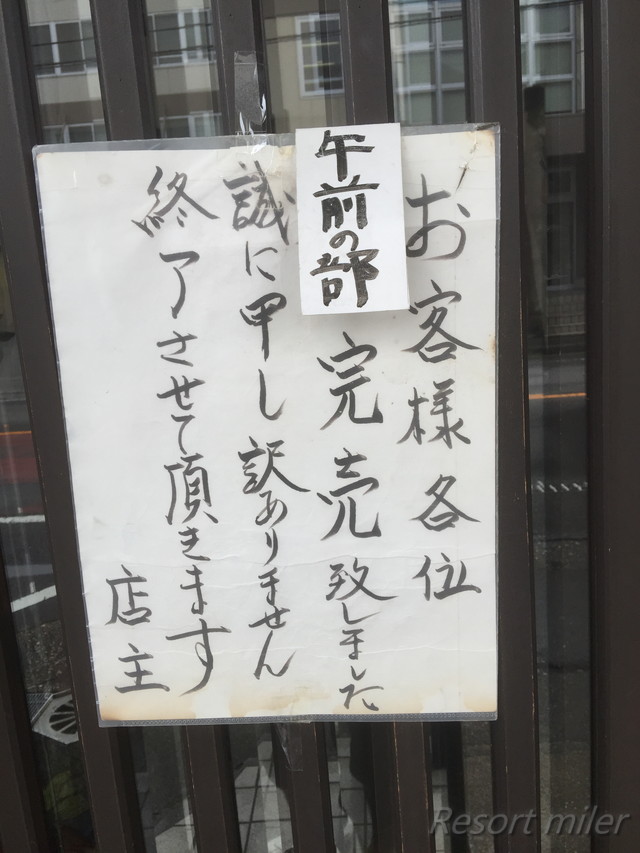 お客様各位
午前の部
完売致しました
誠に申し訳ありません
終了させて頂きます
店主
Resort miler